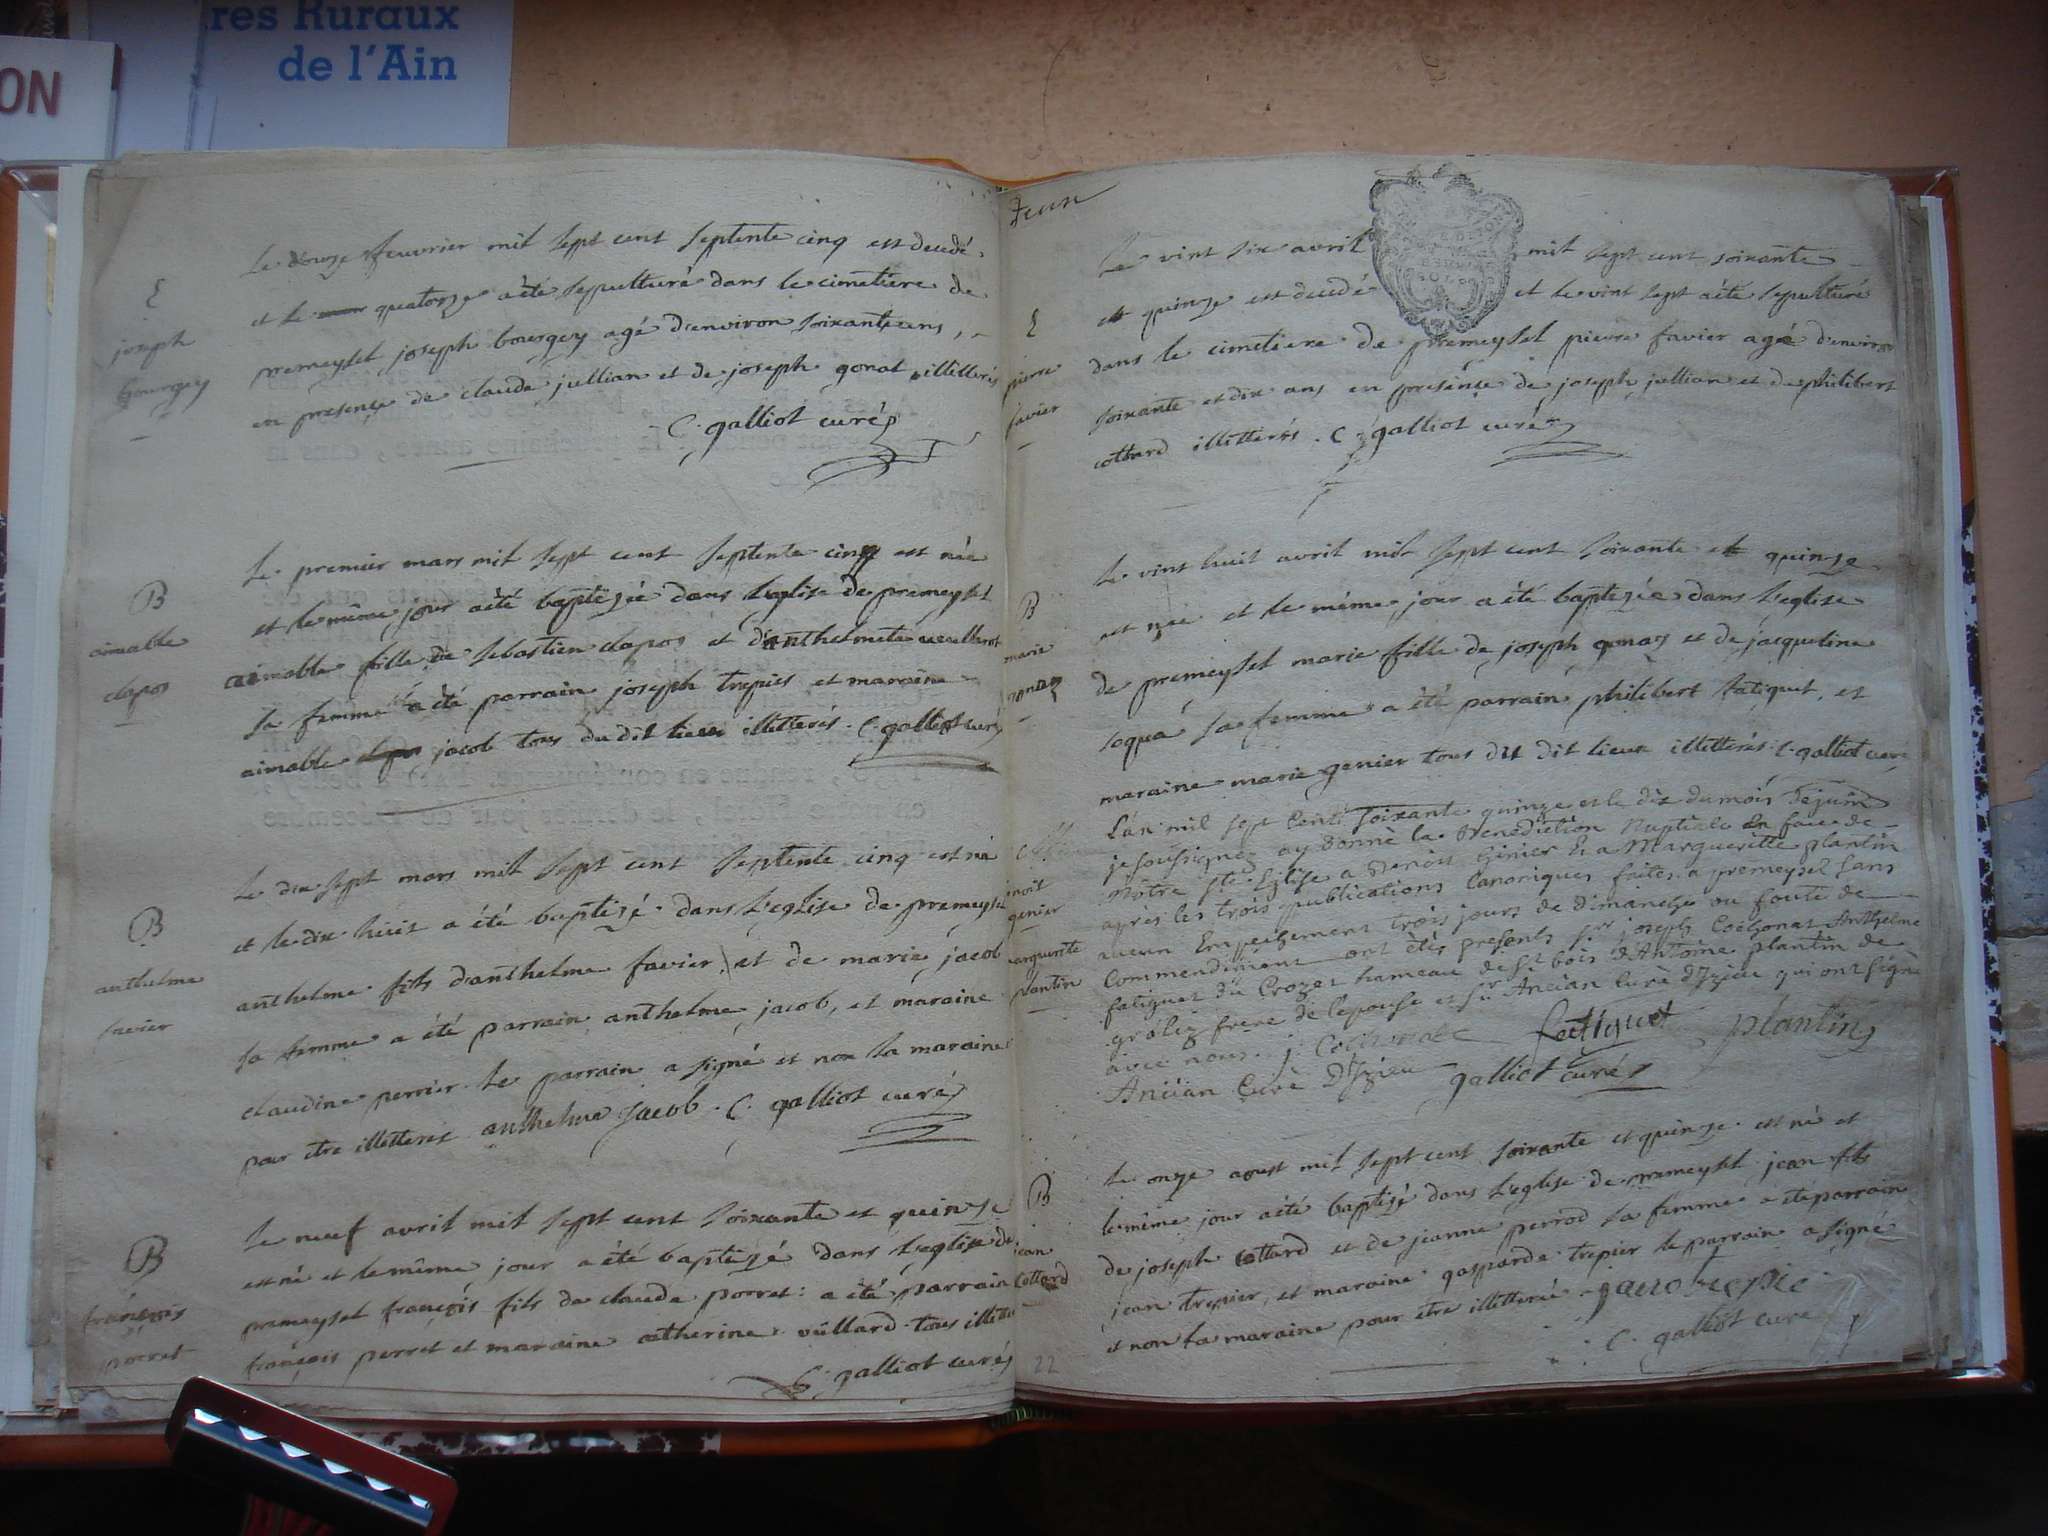 res Ruraux
de l'Ain
ON
Le douze feuvrier mil sept cent septente cinq est decedé
et le quatorze a été sepulturé dans le cimetiere de
premeysel joseph bourgey agé d'environ soixante ans,
en presence de claude jullian et de joseph gonat illitterés
C. galliot curé
E
joseph
bourgey
Le premier mars mil sept cent septente cinq est née
et le même jour a été baptizée dans l'eglise de premeysel
aimable fille de sebastien clapos et d'anthelmete
sa femme a été parrain joseph trepier et maraine
aimable jacob tous du dit lieu illitterés. C. galliot curé
B
aimable
clapos
Le dix sept mars mil sept cent septente cinq est né
et le dix huit a été baptizé dans l'eglise de premeysel
anthelme fils d'anthelme favier et de marie jacob
sa femme a été parrain anthelme jacob, et maraine
claudine perrier le parrain a signé et non la maraine
pour être illitteré anthelme jacob. C. galliot curé
B
anthelme
favier
Le neuf avril mil sept cent soixante et quinze
est né et le même jour a été baptizé dans l'eglise de
premeysel françois fils de claude porret: a été parrain
françois perret et maraine catherine vullard tous
C. galliot curé
B
françois
porret
Jean
Le vint six avril mil sept cent soixante
et quinze est decedé et le vint sept a été sepulturé
dans le cimetiere de premeysel pierre favier agé d'environ
soixante et dix ans en presence de joseph jullian et de philibert
cottard illitterés. C. galliot curé
E
pierre
favier
Le vint huit avril mil sept cent soixante et quinze
est née et le même jour a été baptizée dans l'eglise
de premeysel marie fille de joseph gonaz et de jacqueline
soqua sa femme a été parrain philibert fatiguet, et
maraine marie genier tous du dit lieux illitterés C. galliot curé
B
marie
gonaz
L'an mil sept cent soixante quinze et le dix du mois de juin
je soussignez ay donné la Benediction Nuptiale en face de
Nôtre Ste Eglise a Benoit Ginier & a Margueritte plantin
apres les trois publications Canoniques faites a premeysel sans
aucun Empechement trois jours de dimanche ou foute de
Commendement ont étés presents Sr joseph Anthelme
fatiguet du Crozet hameau de St bois d'Antoine plantin de
frere de l'epouse et Sr Ancian Curé d'Izieu qui ont signé
avec nous. fatiguet plantin
Ancian Curé D'Izieu galliot curé
noit
genier
marguerite
plantin
Le onze aoust mil sept cent soixante et quinze est né et
le même jour a été baptizé dans l'eglise de premeysel jean fils
de joseph cottard et de jeanne perrod sa femme a été parrain
jean trepier, et maraine gasparde trepier le parrain a signé
et non la maraine pour être illitterée
C. galliot curé
B
jean
Cottard
22